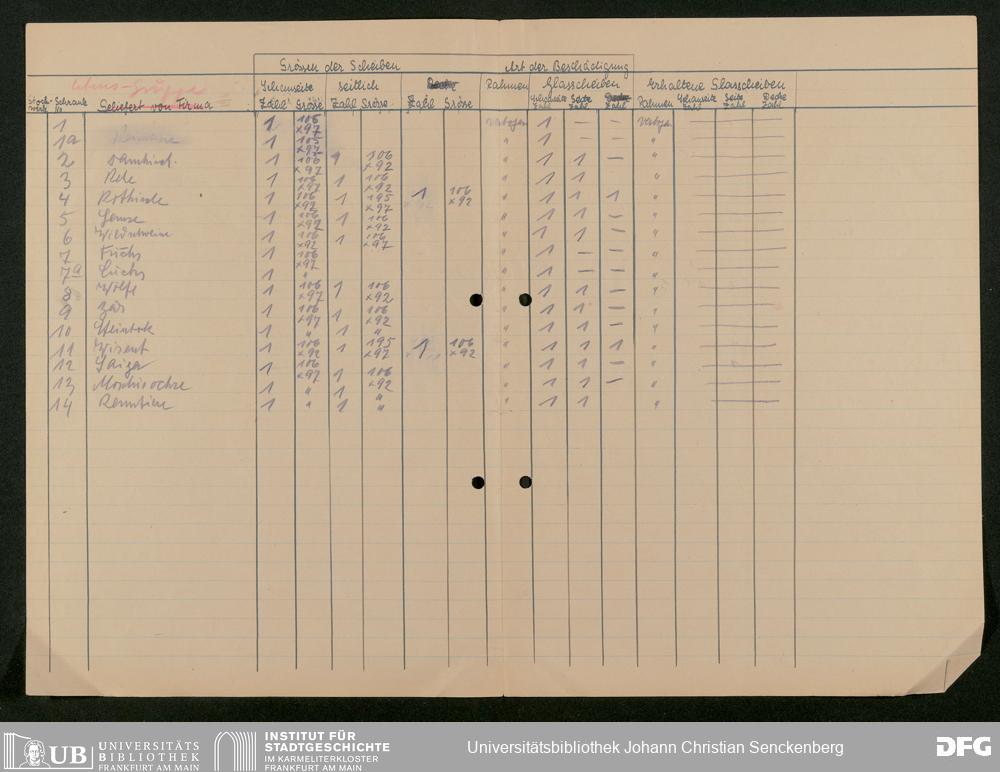 Grössen der Scheiben Art der Beschädigung
Schauseite seitlich Rahmen Glasscheiben Erhaltene Glasscheiben
Stock- Schrank Geliefert von Firma Zahl Grösse Zahl Grösse Zahl Grösse Schauseite Zahl Seite Zahl Zahl Rahmen Schauseite Zahl Seite Zahl Decke Zahl
1 1 106 x 97 verbogen 1 – – verbogen
1a 1 105 x 97 " 1 – "
2 1 106 x 97 1 106 x 92 " 1 1 – "
3 Rehe 1 106 x 97 1 106 x 92 " 1 1 "
4 Rothirsche 1 106 x 92 1 195 x 97 1 106 x 92 " 1 1 1 "
5 Gemse 1 106 x 97 1 106 x 92 " 1 1 – "
6 Wildschweine 1 106 x 92 1 106 x 97 " 1 1 – "
7 Fuchs 1 106 x 97 " 1 – – "
7a Luchs 1 " " 1 – – "
8 Wölfe 1 106 x 97 1 106 x 92 " 1 1 – "
9 Bär 1 106 x 97 1 106 x 92 " 1 1 – "
10 Steinbock 1 " 1 " " 1 1 – "
11 Wisent 1 106 x 92 1 195 x 97 1 106 x 92 " 1 1 1 "
12 Saiga 1 106 x 97 1 106 x 92 " 1 1 – "
13 Moschusochse 1 " 1 " " 1 1 – "
14 Renntiere 1 " 1 " " 1 1 "
UB UNIVERSITÄTS BIBLIOTHEK FRANKFURT AM MAIN
INSTITUT FÜR STADTGESCHICHTE IM KARMELITERKLOSTER FRANKFURT AM MAIN
Universitätsbibliothek Johann Christian Senckenberg
DFG